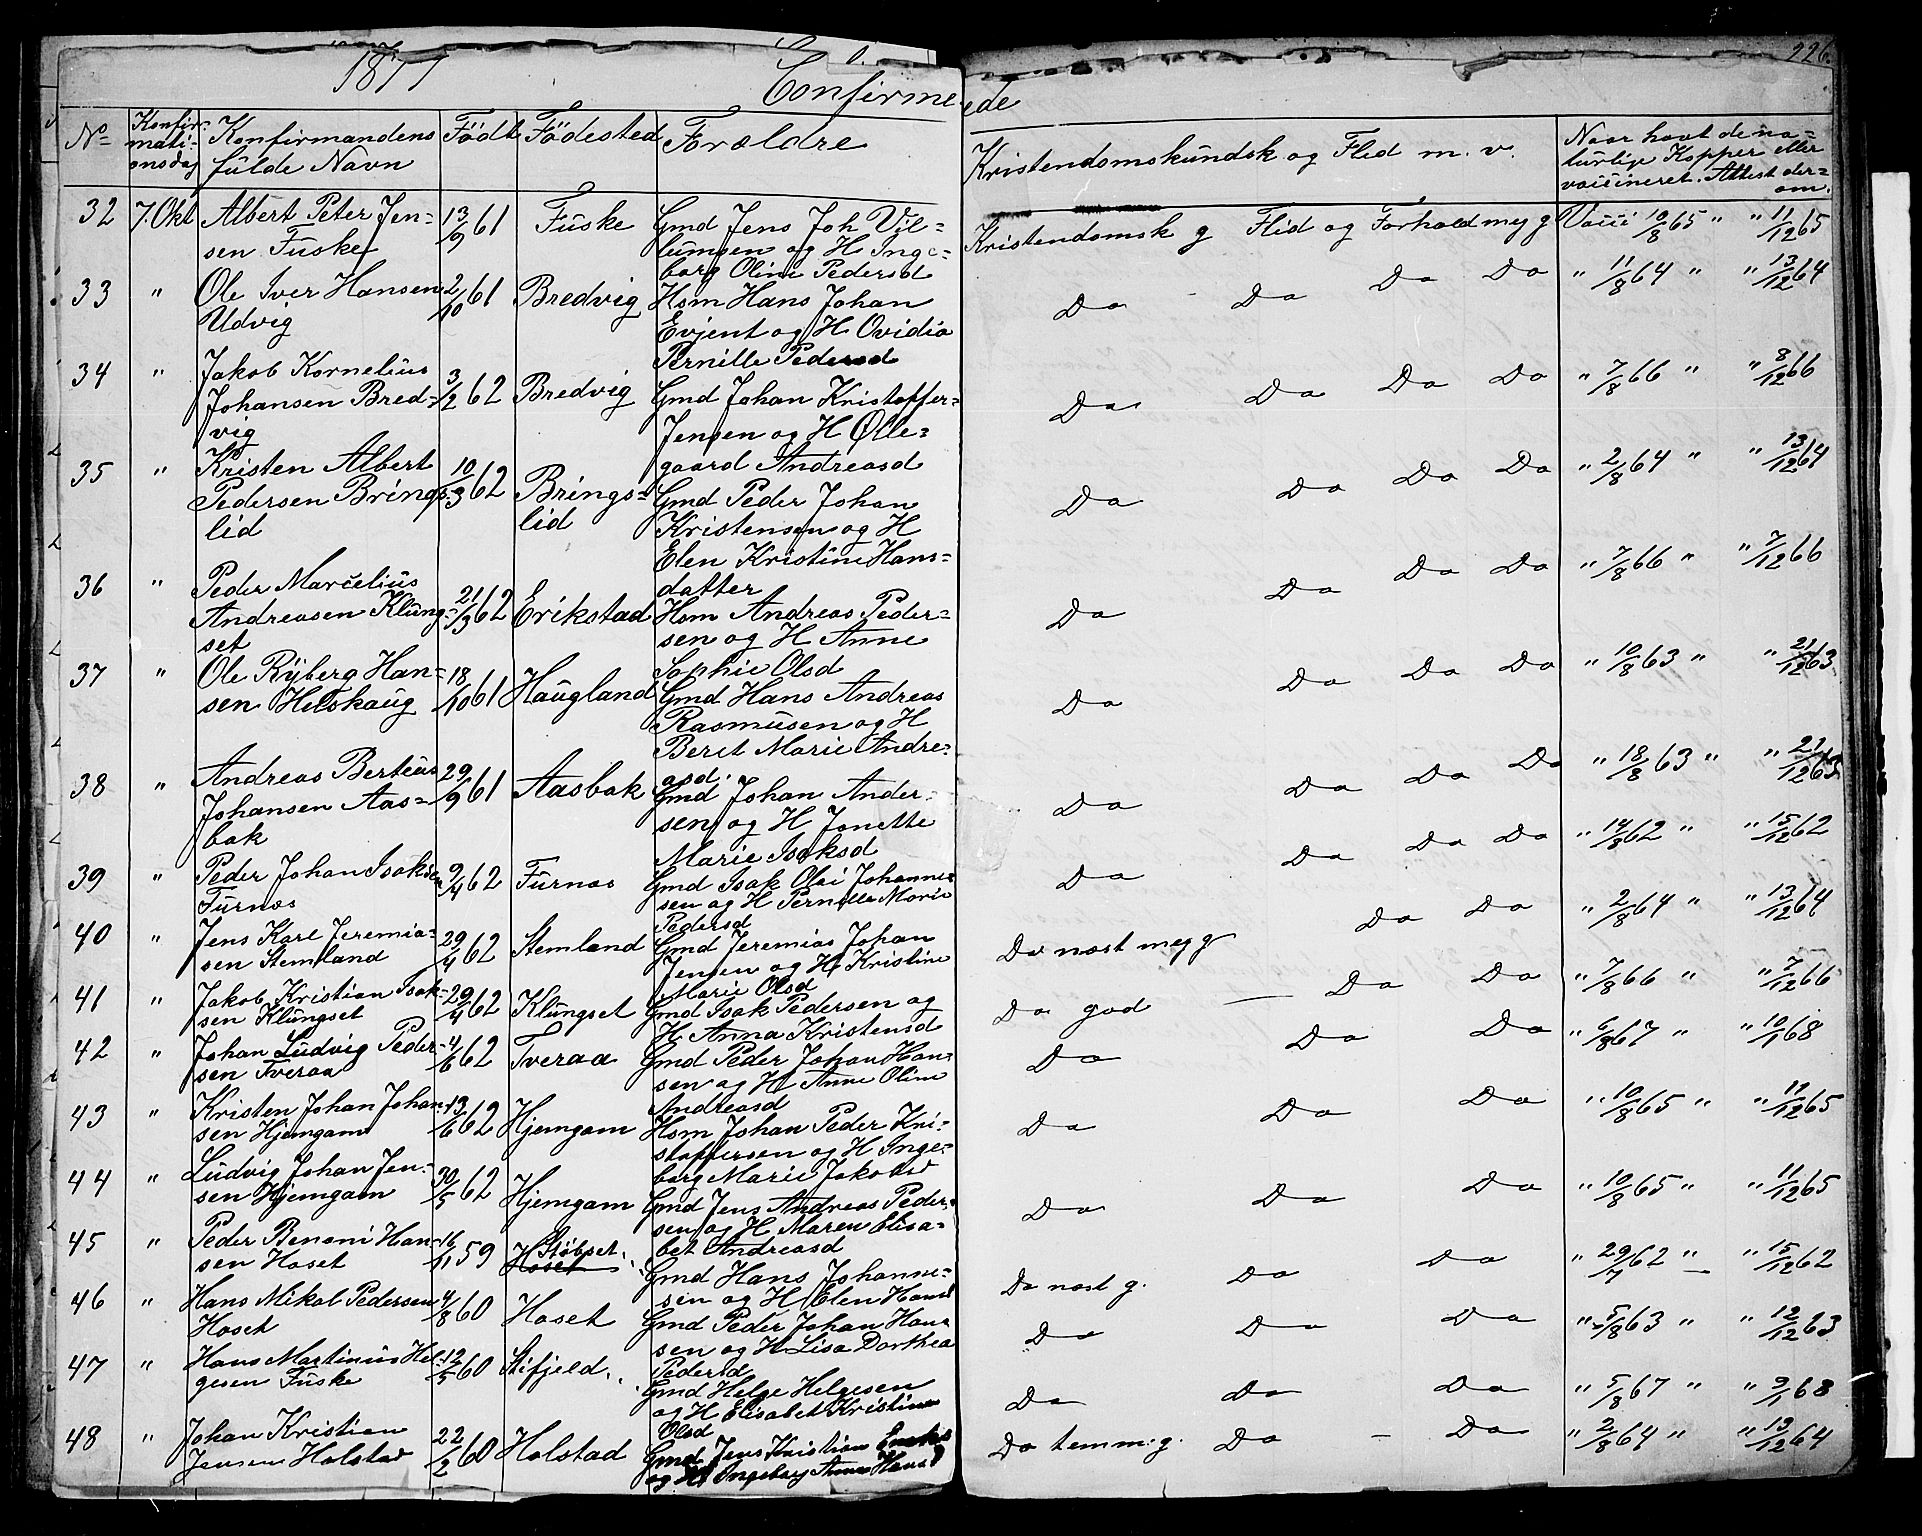 1877
Confirmerede
226.
No Konfirmationsdag Konfirmandens fulde Navn Født Fødested Forældre Kristendomskundsk og Flid m. v. Naar havt de naturlige Kopper eller vaccineret. Attest derom.
32 7. Okt Albert Peter Jensen Fuske 13/9 61 Fuske Gmd Jens Joh Villumsen og H Ingeborg Oline Pedersd Kristendomsk g Flid og Forhold meg g Vacci 10/8 65 " " 11/12 65
33 " Ole Iver Hansen Udvig 2/10 61 Bredvig Hsm Hans Johan Evjent og H Ovidia Pernille Pedersd Do Do Do Do " 11/8 64 " " 13/12 64
34 " Jakob Kornelius Johansen Bredvig 3/2 62 Bredvig Gmd Johan Kristoffer Jensen og H Øllegaard Andreasd Do Do Do Do " 7/8 66 " " 8/12 66
35 " Kristen Albert Pedersen Bringslid 10/3 62 Bringslid Gmd Peder Johan Kristensen og H Elen Kristine Hansdatter Do Do Do Do " 2/8 64 " " 13/12 64
36 " Peder Marcelius Andreasen Klungset 21/3 62 Erikstad Hsm Andreas Pedersen og H Anne Sophie Olsd Do Do Do Do " 7/8 66 " " 7/12 66
37 " Ole Ryberg Hansen Helskaug 18/10 61 Haugland Gmd Hans Andreas Rasmusen og H Beret Marie Andreasd. Do Do Do Do " 10/8 63 " " 21/12 63
38 " Andreas Berteus Johansen Aasbak 29/9 61 Aasbak Gmd Johan Andersen og H Jonette Marie Isaksd Do Do Do Do " 18/8 63 " " 21/12 63
39 " Peder Johan Isaksen Furnes 9/4 62 Furnes Gmd Isak Olai Johannesen og H Pernille Marie Pedersd Do Do Do Do " 14/8 62 " " 15/12 62
40 " Jens Karl Jeremiasen Stemland 29/4 62 Stemland Gmd Jeremias Johan Jensen og H Kristine Marie Olsd Do næst meg g Do Do " 2/8 64 " " 13/12 64
41 " Jakob Kristian Isaksen Klungset 29/4 62 Klungset Gmd Isak Pedersen og H Anna Kristensd Do god — Do Do " 7/8 66 " " 7/12 66
42 " Johan Ludvig Pedersen Tveraa 4/6 62 Tveraa Gmd Peder Johan Hansen og H Anne Oline Andreasd Do Do Do " 6/8 67 " " 10/1 68
43 " Kristen Johan Johansen Hjemgam 13/6 62 Hjemgam Hsm Johan Peder Kristoffersen og H Ingeborg Marie Jakobsd Do Do Do " 10/8 65 " " 11/12 65
44 " Ludvig Johan Jensen Hjemgam 30/5 62 Hjemgam Gmd Jens Andreas Pedersen og H Maren Elisabet Andreasd Do Do Do " 10/8 65 " " 11/12 65
45 " Peder Benoni Hansen Hoset 16/11 59 Støbset Hoset Gmd Hans Johannesen og H Elen Hansd Do næst g. Do Do " 29/7 62 " " 15/12 62
46 " Hans Mikal Pedersen Hoset 4/8 60 Hoset Gmd Peder Johan Hansen og H Lisa Dorthea Pedersd Do Do Do " 5/8 63 " " 12/12 63
47 " Hans Martinus Helgesen Fuske 12/5 60 Stifjeld Gmd Helge Helgesen og H Elisabet Kristine Olsd Do Do Do " 5/8 67 " " 9/1 68
48 " Johan Kristian Jensen Holstad 22/2 60 Holstad Gmd Jens Kristian og H Ingeborg Anne Hansd Do temm. g. Do — Do " 2/8 64 " " 13/12 64